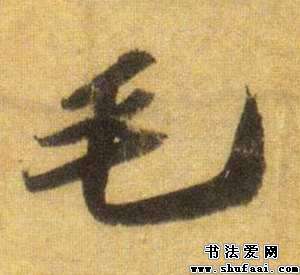 毛
书法爱网
www.shufaai.com